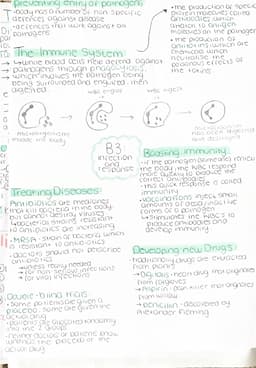 Preventing entry of pathogens
- body has a number of non specific
defences against disease
- defences that work against all
pathogens
The Immune System
→ white blood cells help defend against
pathogens through phagocytosis
→ which involves the pathogen being
being surrounded and engulfed then
digested
WBC engulf
WBC digests
Microorganisms
invade the body
Microorganisms
has been digested
and destroyed
→ the production of special
protein molecules called
antibodies which
attach to antigen
molecules on the pathogen
→ the production of
antitoxins which are
chemicals which
neutralise the
poisonous effects of
the toxins
B3
infection
and
response
Boosting immunity:
- if the same pathogen re-enters
the body the WBC respond
more quickly to produce the
correct antibodies
- this quick response is called
immunity
→ Vaccinations inject small
amounts of dead/inactive
forms of a pathogen
→ stimulates the WBC's to
produce antibodies and
develop immunity
Treating Diseases:
Antibiotics are medicines
that kill bacteria in the body
but cannot destroy viruses
→ bacterial strains resistant
to antibiotics are increasing
→ MRSA - strain of bacteria which
is resistant to antibiotics
→ doctors should not prescribe
antibiotics
→ unless really needed
→ for non-serious infections
→ for viral infections
Double-blind trials
→ some patients are given a
placebo. some are given the
actual drug
- patients are allocated randomly
into the 2 groups
- neither doctors or patients know
who has the placebo or the
actual drug
Developing new Drugs:
- traditionally drugs are extracted
from plants
→ Digitalis - heart drug that originates
from foxgloves
→ Aspirin - pain killer that originates
from willow
→ Penicillin - discovered by
Alexander Fleming